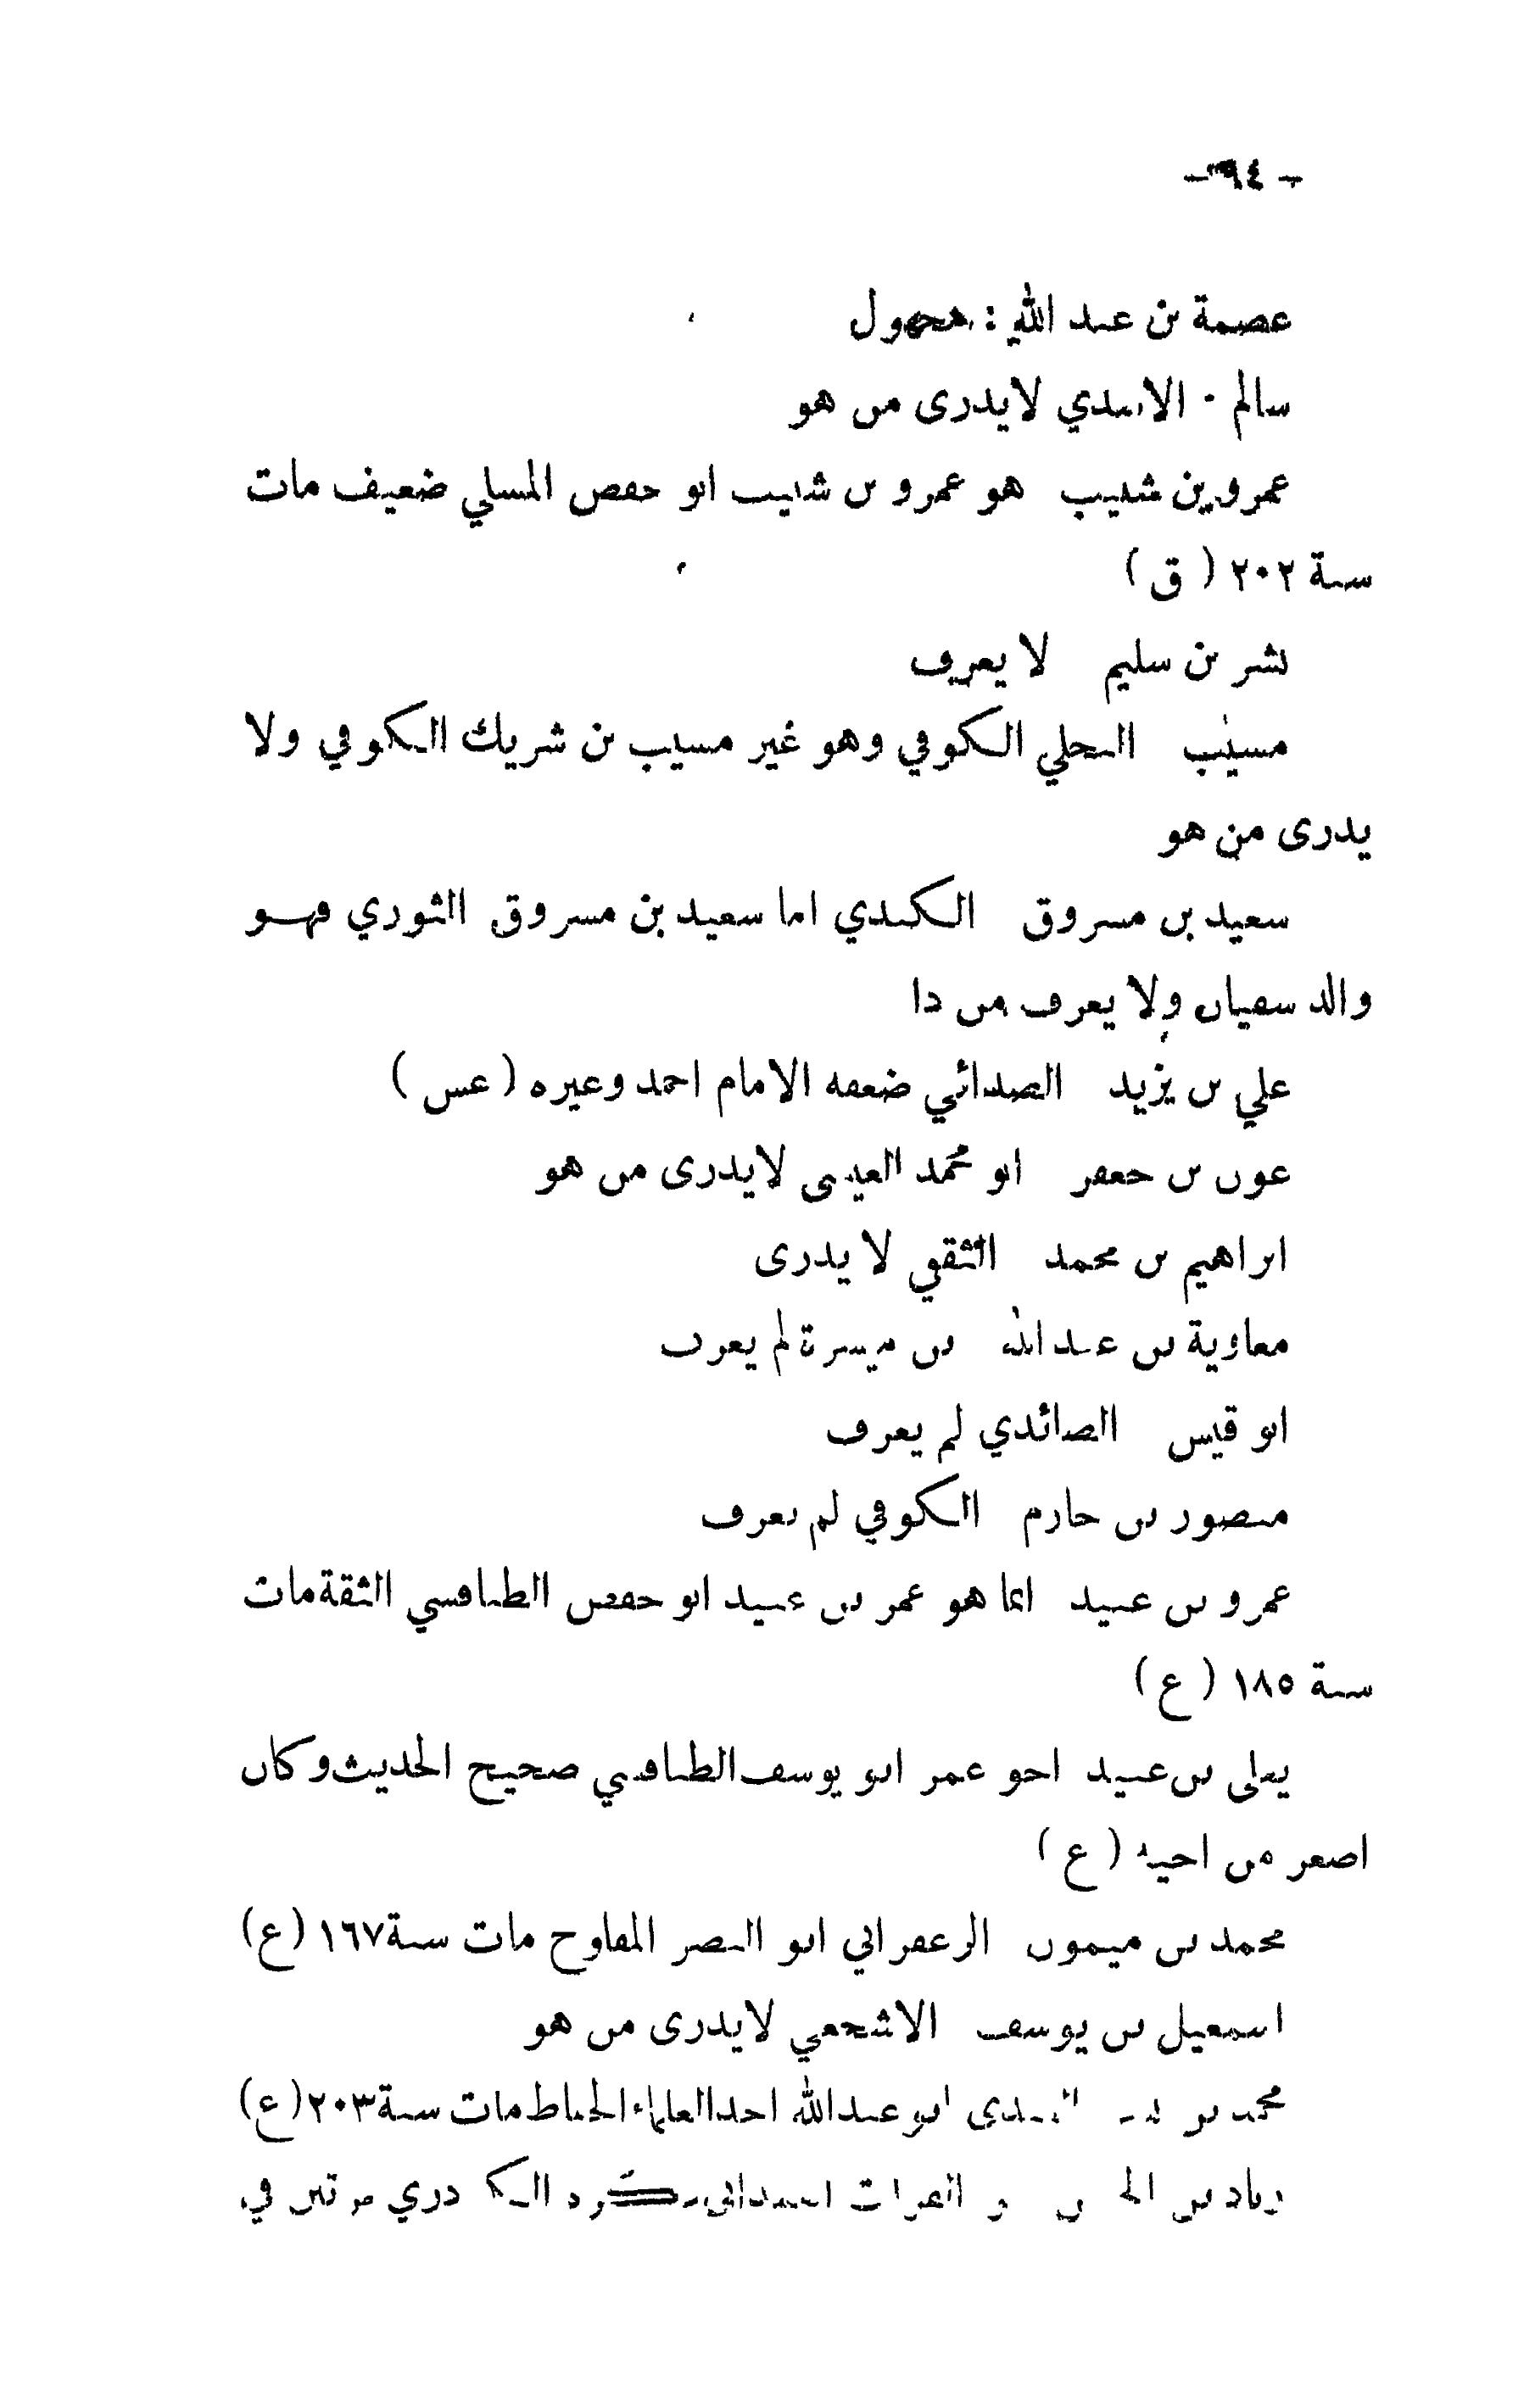 - ٣٩٤ -
عصمة بن عبد الله : مجهول
سالم · الاسدي لايدرى من هو
عمرو بن شبيب هو عمرو بن شبيب ابو حفص المسلي ضعيف مات
سنة ٢٠٢ ( ق )
بشر بن سليم لا يعرف
مسيب البجلي الكوفي وهو غير مسيب بن شريك الكوفي ولا
يدرى من هو
سعيد بن مسروق الكندي اما سعيد بن مسروق الثوري فهو
والد سفيان ولا يعرف من ذا
علي بن يزيد الصدائي ضعفه الامام احمد وغيره ( عس )
عون بن جعفر ابو محمد لايدرى من هو
ابراهيم بن محمد الثقفي لا يدرى
معاوية بن عبد الله بن ميسرة لم يعرف
ابو قيس الصائدي لم يعرف
منصور بن حازم الكوفي لم يعرف
عمرو بن عبيد انما هو عمر بن عبيد ابو حفص الطنافسي الثقة مات
سنة ١٨٥ ( ع )
يعلى بن عبيد اخو عمر ابو يوسف الطنافسي صحيح الحديث وكان
اصغر من اخيه ( ع )
محمد بن ميمون الزعفراني ابو النضر المفلوج مات سنة ١٦٧ (ع)
اسمعيل بن يوسف الاشجعي لايدرى من هو
محمد بن ابو عبد الله احد العلماء الحفاظ مات سنة ٢٠٣ (ع)
زياد بن في